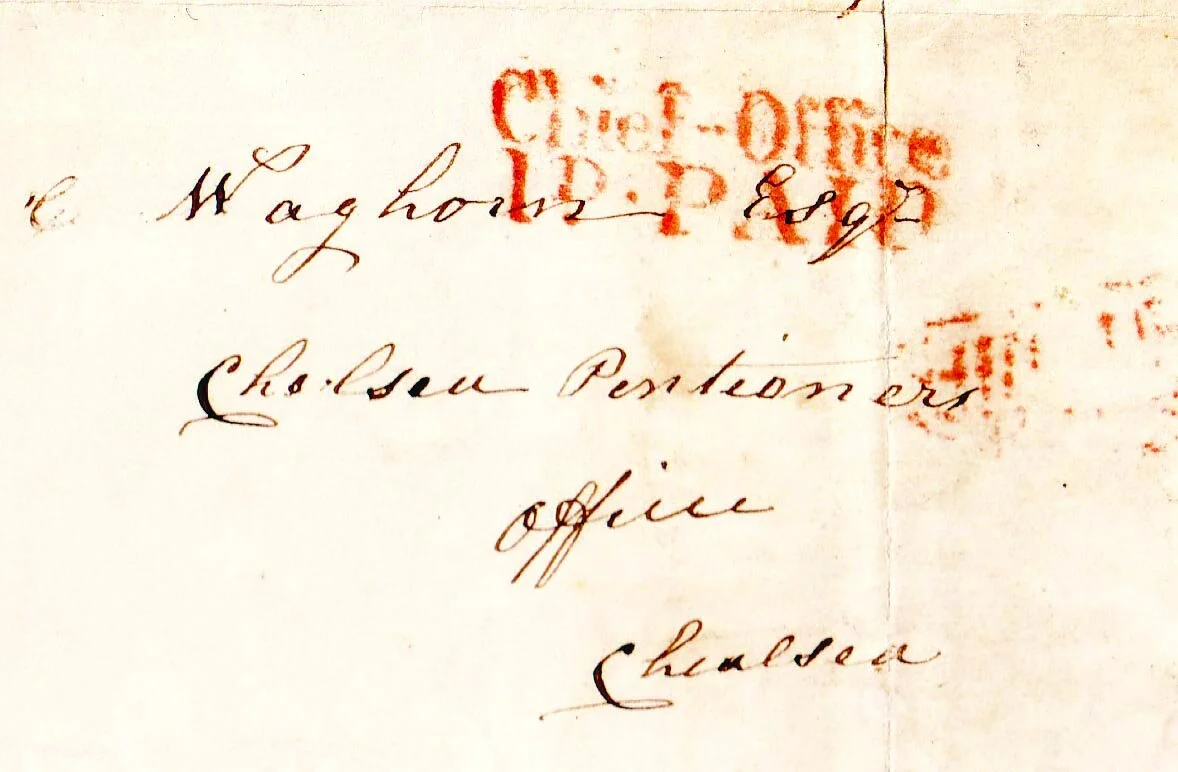 Chief-Office
1D. PAID
Waghorn Esqr
Chelsea Pentioners
Office
Chealsea